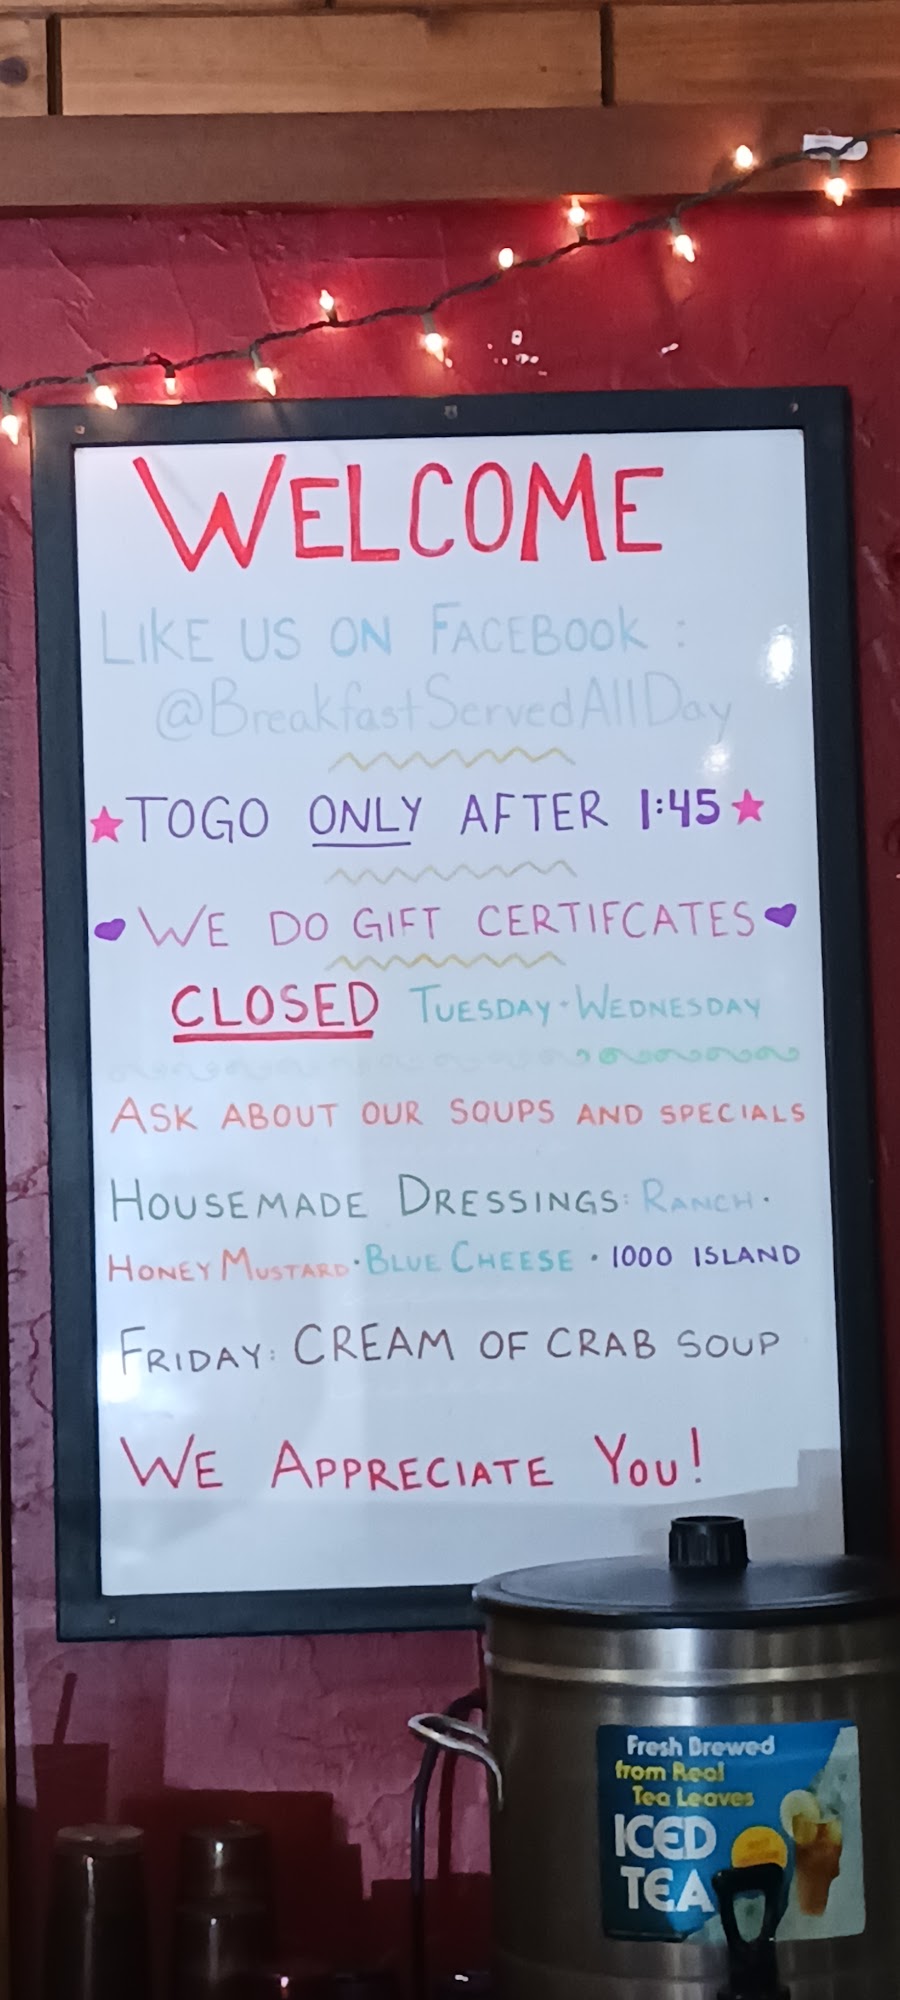 WELCOME
LIKE US ON FACEBOOK :
@BreakfastServedAllDay
TOGO ONLY AFTER 1:45
WE DO GIFT CERTIFCATES
CLOSED TUESDAY · WEDNESDAY
ASK ABOUT OUR SOUPS AND SPECIALS
HOUSEMADE DRESSINGS: RANCH ·
HONEY MUSTARD · BLUE CHEESE · 1000 ISLAND
FRIDAY: CREAM OF CRAB SOUP
WE APPRECIATE YOU!
Fresh Brewed
from Real
Tea Leaves
ICED
TEA